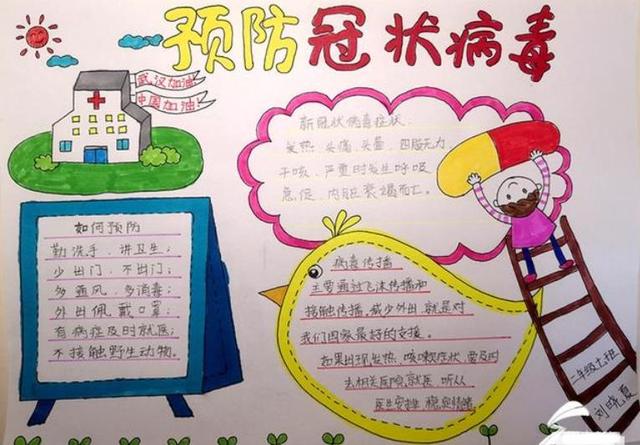 预防冠状病毒
武汉加油
中国加油
新冠状病毒症状:
发热、头痛、头晕、四肢无力、
干咳、严重时发生呼吸
急促、内脏衰竭而亡。
如何预防
勤洗手、讲卫生;
少出门、不出门;
多通风、多消毒;
外出佩戴口罩;
有病症及时就医;
不接触野生动物。
病毒传播
主要通过飞沫传播和
接触传播,减少外出就是对
我们国家最好的支援。
如果出现发热、咳嗽症状,要及时
去相关医院就医,听从
医生安排,稳定情绪
二年级七班
刘晓夏